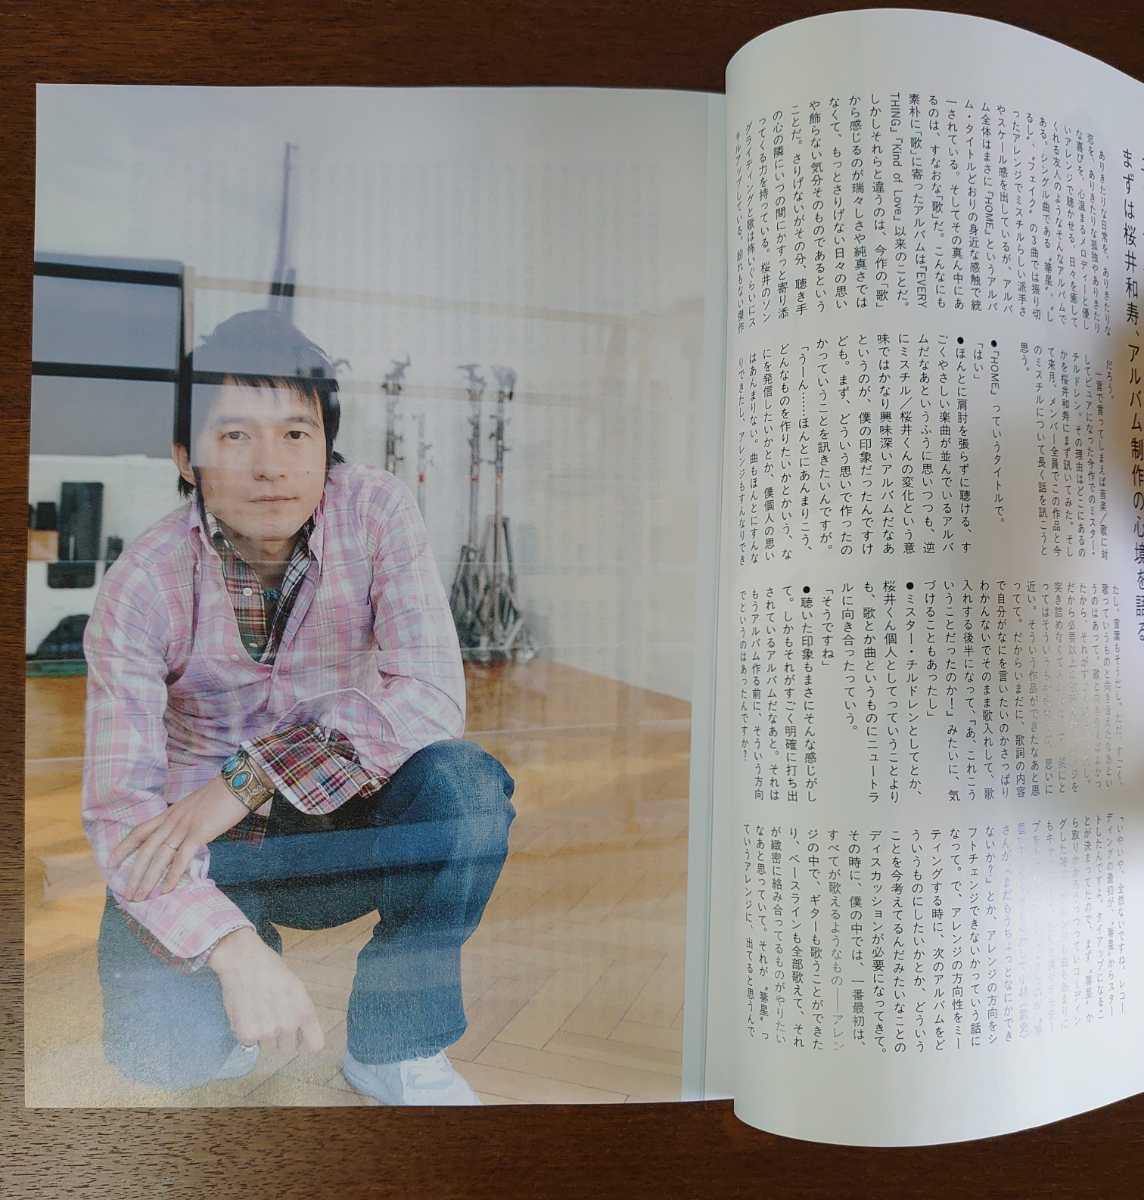 まずは桜井和寿、アルバム制作の心境を語る
ありきたりな日常を、ありきたりな
恋を、ありきたりな孤独やありきたり
な喜びを、心温まるメロディーと優し
いアレンジで聴かせる、日々を癒して
くれる友人のようなそんなアルバムで
ある。シングル曲である〝箒星〟、〝し
るし〟、〝フェイク〟の3曲では振り切
ったアレンジでミスチルらしい派手さ
やスケール感を出しているが、アルバ
ム全体はまさに『HOME』というアルバ
ム・タイトルどおりの身近な感触で統
一されている。そしてその真ん中にあ
るのは、すなおな「歌」だ。こんなにも
素朴に「歌」に寄ったアルバムは『EVERY
THING』『Kind of Love』以来のことだ。
しかしそれらと違うのは、今作の「歌」
から感じるのが瑞々しさや純真さでは
なくて、もっとさりげない日々の思い
や飾らない気分そのものであるという
ことだ。さりげないがその分、聴き手
の心の隣にいつの間にかすっと寄り添
ってくる力を持っている。桜井のソン
グライティングと歌は怖いぐらいにス
キルアップしている。紛れもない傑作
だろう。
一言で言ってしまえば音楽/歌に対
してピュアになった今作でのミスター・
チルドレン。その理由はどこにあるの
かを桜井和寿にまず訊いてみた。そし
て来月、メンバー全員でこの作品と今
のミスチルについて長く話を訊こうと
思う。
●『HOME』っていうタイトルで。
「はい」
●ほんとに肩肘を張らずに聴ける、す
ごくやさしい楽曲が並んでいるアルバ
ムだなあというふうに思いつつも、逆
にミスチル/桜井くんの変化という意
味ではかなり興味深いアルバムだなあ
というのが、僕の印象だったんですけ
ども。まず、どういう思いで作ったの
かっていうことを訊きたいんですが。
「うーん……ほんとにあんまりこう、
どんなものを作りたいかとかいう、な
にを発信したいかとか、僕個人の思い
はあんまりない。曲もほんとにすんな
りできたし、アレンジもすんなりでき
たし、言葉もそうだし。ただ、すごく、
歌っていうものと向き合えたなあとい
うのはあって。
近い。そういう作品ができたなあと思
ってて。だからいまだに、歌詞の内容
で自分がなにを言いたいのかさっぱり
わかんないでそのまま歌入れして、歌
入れする後半になって、「あ、これこう
いうことだったのか!」みたいに、気
づけることもあったし」
●ミスター・チルドレンとしてとか、
桜井くん個人としてっていうことより
も、歌とか曲というものにニュートラ
ルに向き合ったっていう。
「そうですね」
●聴いた印象もまさにそんな感じがし
て。しかもそれがすごく明確に打ち出
されているアルバムだなあと。それは
もうアルバム作る前に、そういう方向
でというのはあったんですか?
「いやいや、全然ないですね。レコー
ディングの最初が、〝箒星〟からスター
トしたんですよ。タイアップになるこ
とが決まってたので、まず〝箒星〟か
ら取りかかろうっつってレコーディン
ないか?」とか、アレンジの方向をシ
フトチェンジできないかっていう話に
なって。で、アレンジの方向性をミー
ティングする時に、次のアルバムをど
ういうものにしたいかとか、どういう
ことを今考えてるんだみたいなことの
ディスカッションが必要になってきて。
その時に、僕の中では、一番最初は、
すべてが歌えるようなもの――アレン
ジの中で、ギターも歌うことができた
り、ベースラインも全部歌えて、それ
が緻密に絡み合ってるものがやりたい
なあと思っていて。それが、〝箒星〟っ
ていうアレンジに、出てると思うんで、